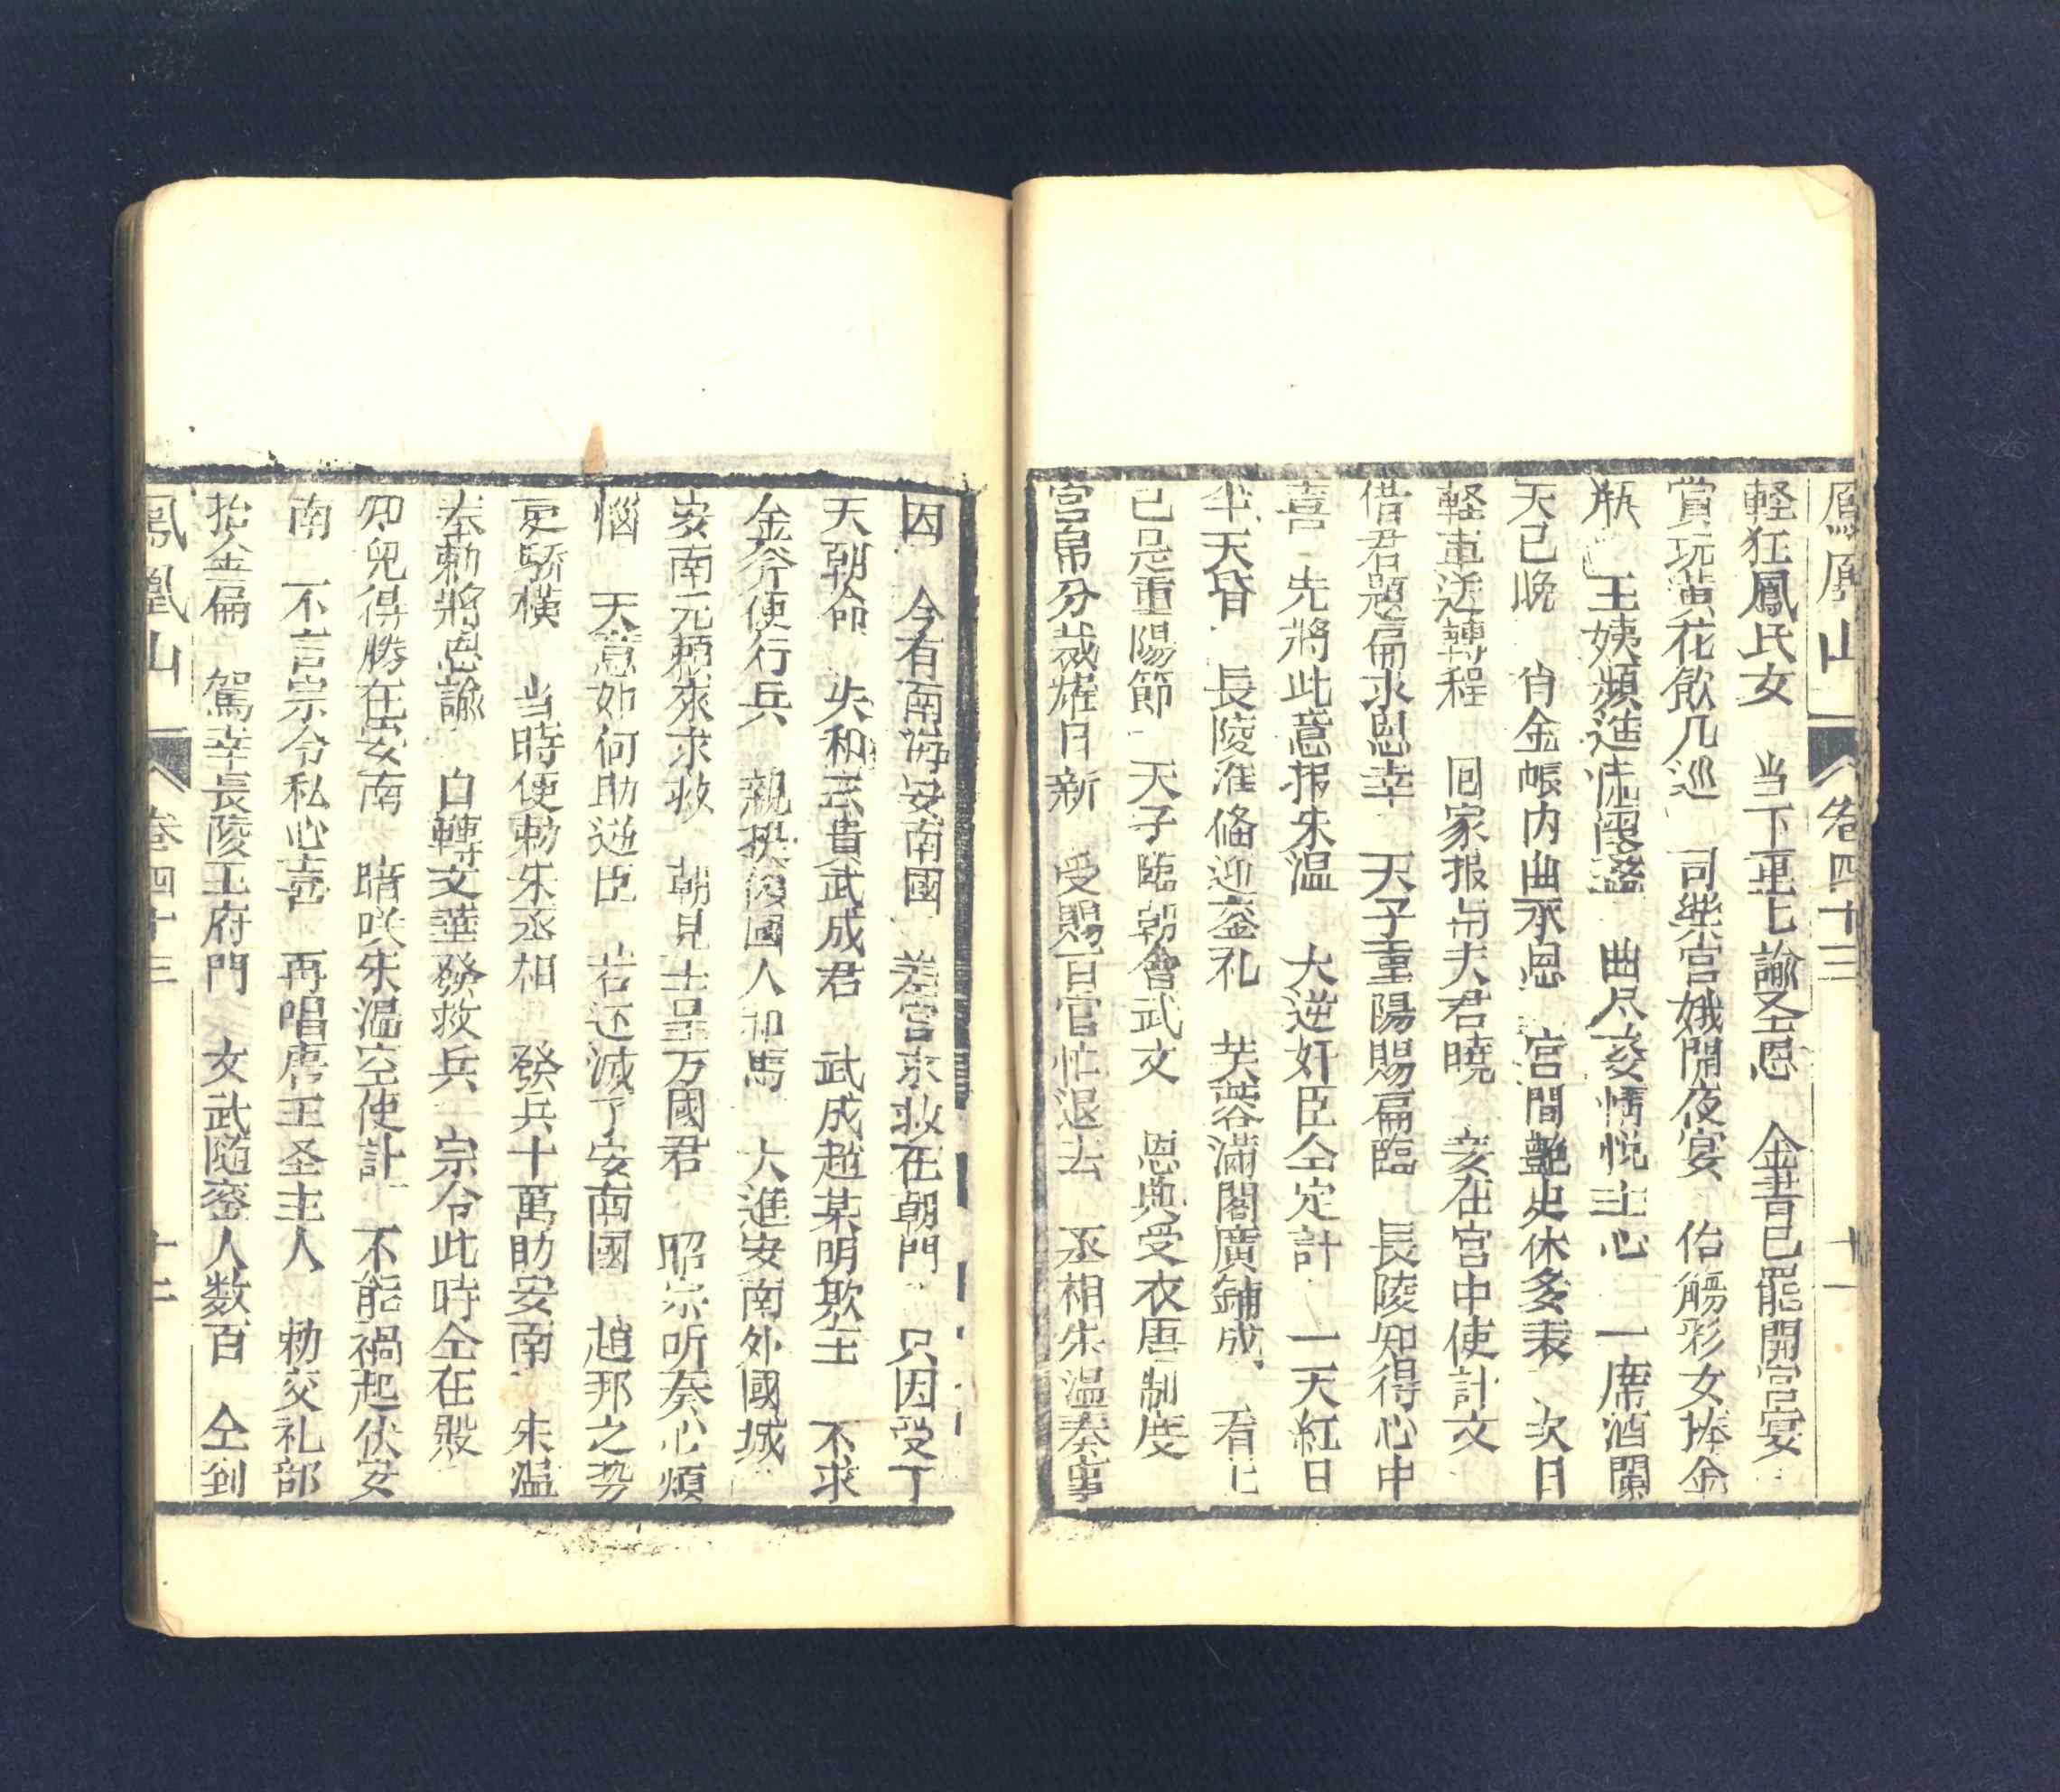 鳳凰山 卷四十三 十一
軽狂鳳氏女 当下重七諭圣恩 金書已罷開宮宴
賞玩黄花飲几巡 司樂宮娥開夜宴 佁觴彩女捧金
瓶 王姨頻進 曲尽姿情悦主心 一席酒闌
天已晚 肖金帳内曲承恩 宮間艶史休多表 次日
軽車返轉程 囬家报与夫君曉 妾在宮中使計文
借君題扁求恩幸 天子重陽賜扁臨 長陵知得心中
喜 先將此意报朱温 大逆奸臣仝定計 一天紅日
半天昏 長陵准偹迎鑾礼 芙蓉滿閣廣鋪成 看七
已是重陽節 天子臨朝會武文 恩典受衣唐制度
宮帛分裁耀日新 受賜百官忙退去 丞相朱温奏事
因 今有南海安南國 差官求救在朝門 只因受了
天朝命 失和云貴武成君 武成趙某明欺主 不求
金斧便行兵 親操傾國人和馬 大進安南外國城
安南元頼來求救 朝見吿呈万國君 昭宗听奏心煩
惱 天意如何助逆臣 若还滅了安南國 趙那之势
更驕横 当時便勅朱丞相 發兵十萬助安南 朱温
奉勅將恩諭 白轉文華發救兵 宗令此時仝在殿
卯兒得勝在安南 暗咲朱温空使計 不能禍起伏安
南 不言宗令私心喜 再唱唐王圣主人 勅交礼部
抬金扁 駕幸長陵王府門 文武随鑾人数百 仝到
鳳凰山 卷四十三 十二